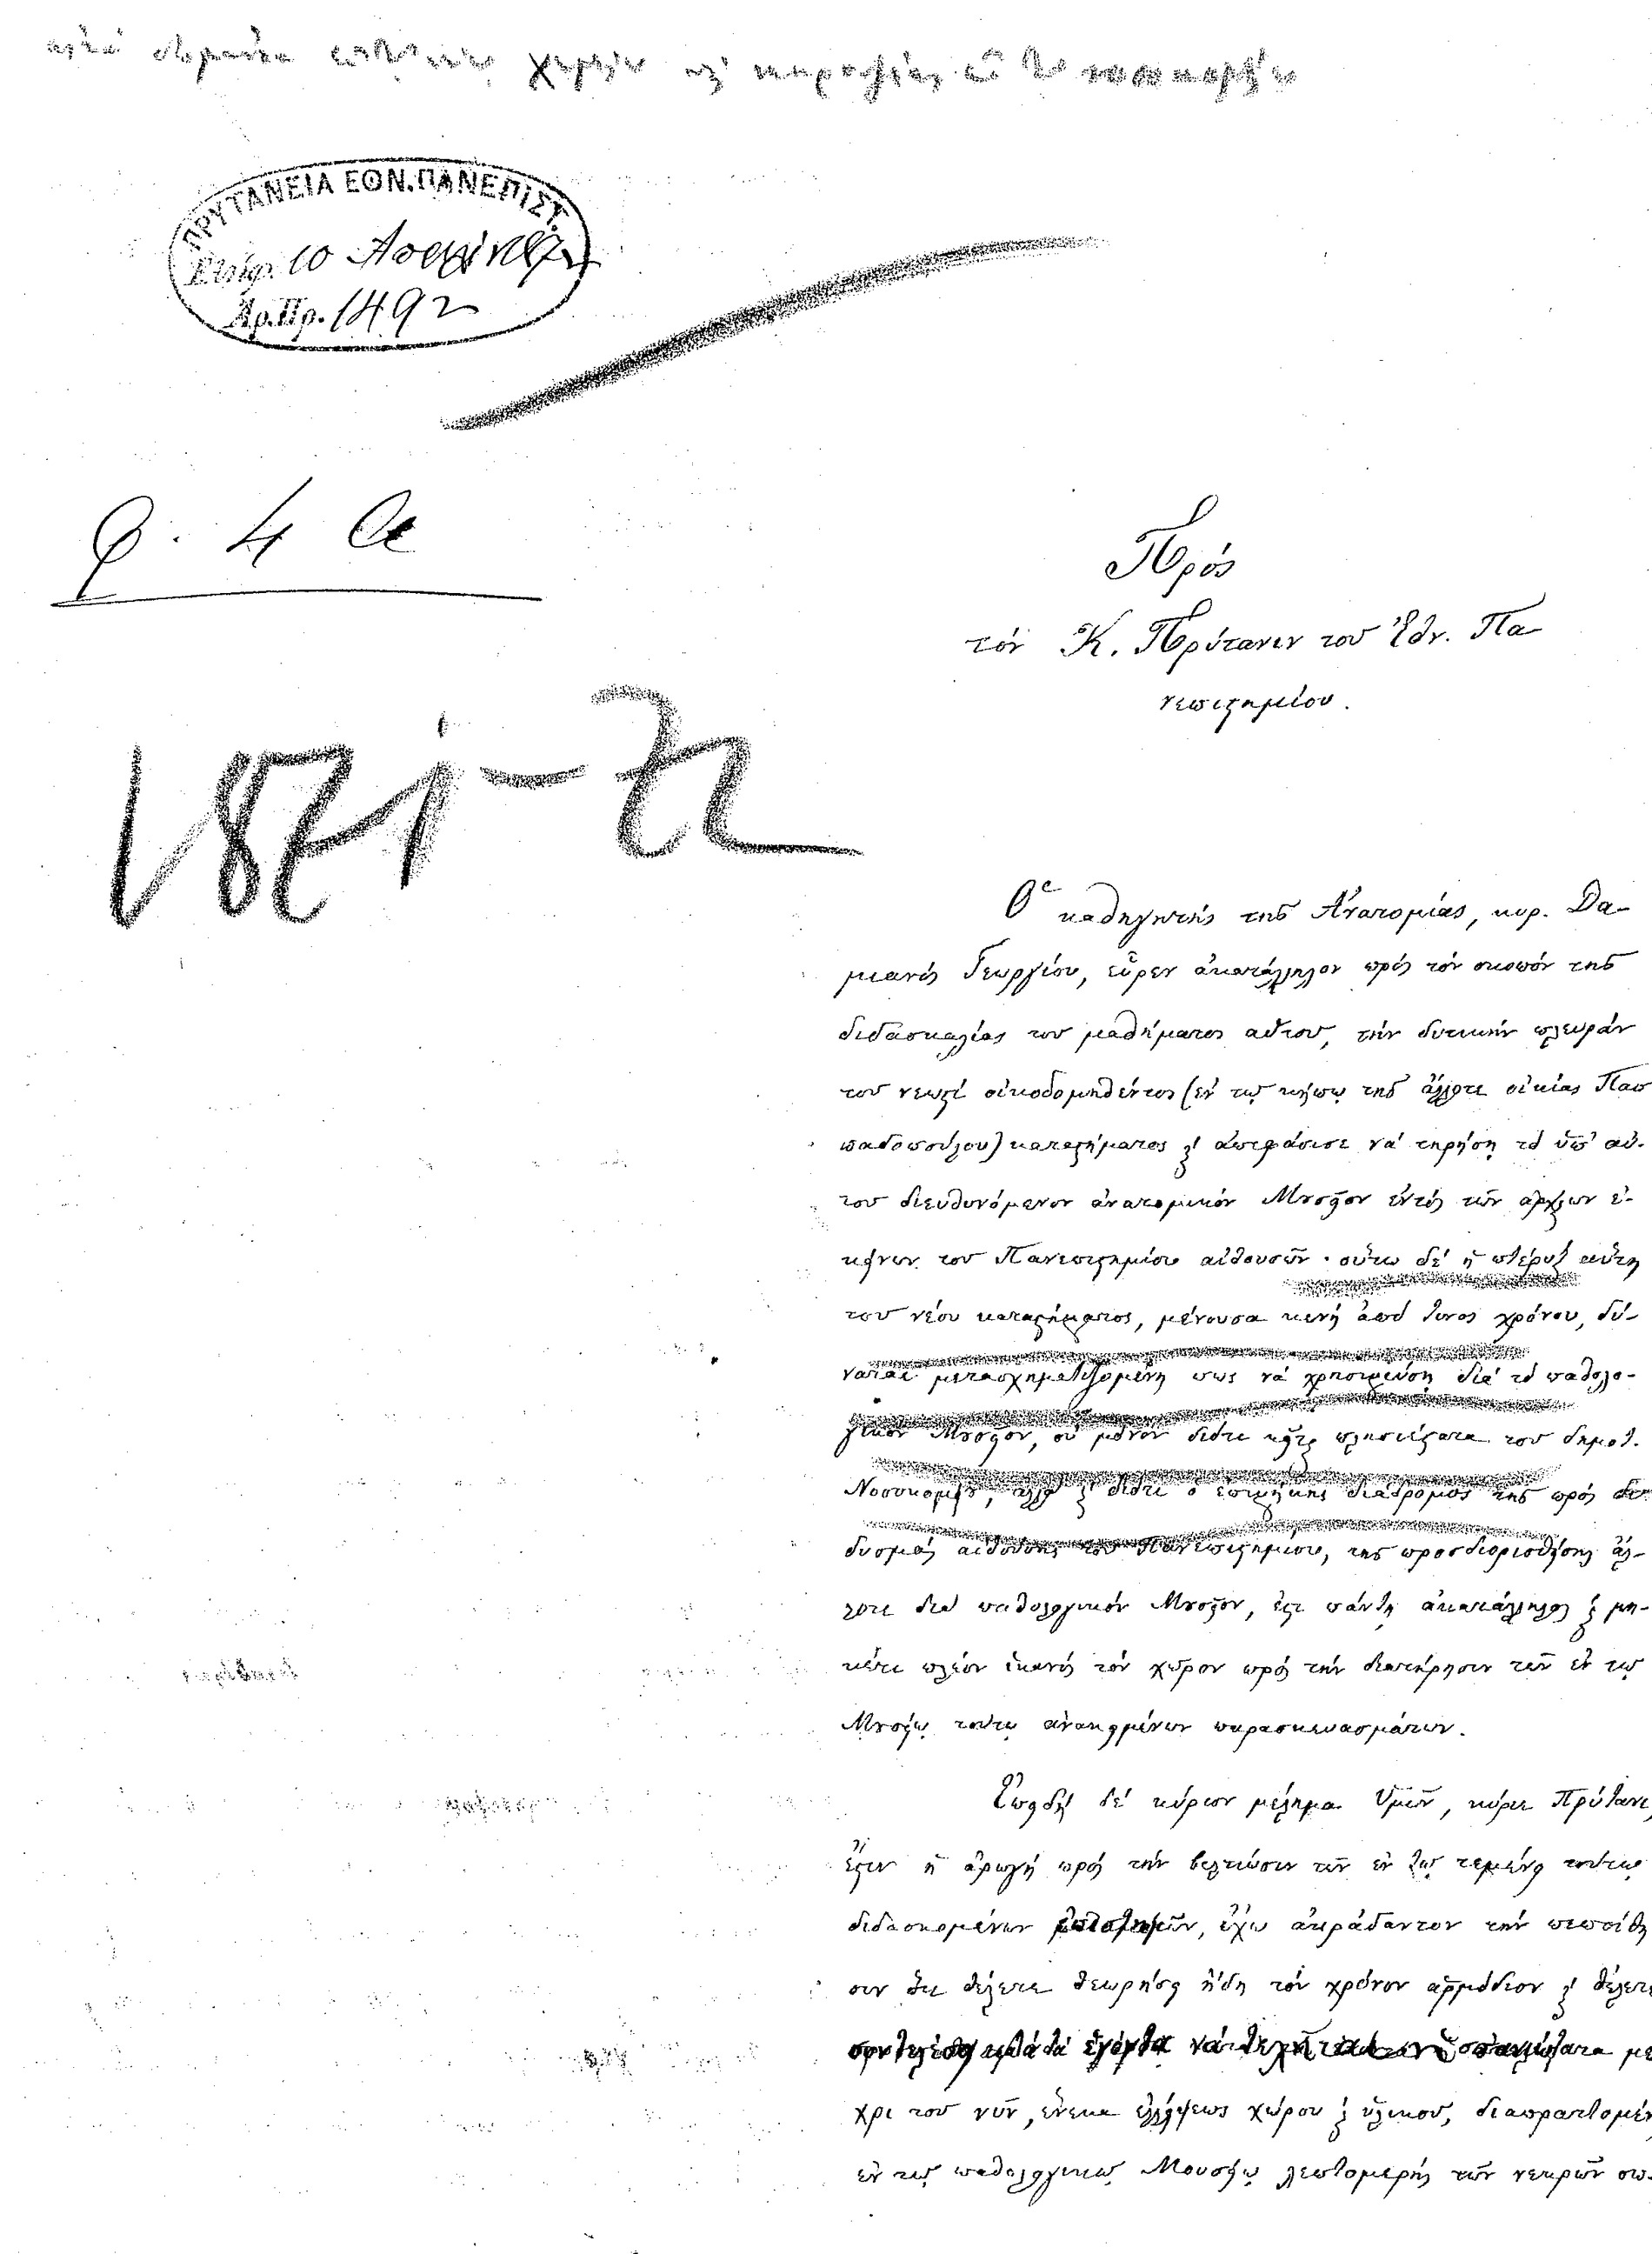 ΠΡΥΤΑΝΕΙΑ ΕΘΝ. ΠΑΝΕΠΙΣΤ.
10
Ἀρ. Πρ. 1492
φ. 4 α
1871-72
Πρός
τόν Κ. Πρύτανιν του Ἐθν. Πα-
νεπιστημίου.
Ὁ καθηγητής της Ἀνατομίας, κυρ. Δα-
μιανός Γεωργίου, εὗρεν ἀκατάλληλον πρός τόν σκοπόν της
διδασκαλίας του μαθήματος αὑτου, τήν δυτικήν πλευράν
του νεωστί οἰκοδομηθέντος (ἐν τῳ κήπῳ της ἄλλοτε οἰκίας Παπ
παδοπούλου) καταστήματος καί ἀπεφάσισε νά τηρήσῃ τό ὑπ' αὐ-
του διευθυνόμενον ἀνατομικόν Μουσεῖον ἐντός τῶν ἀρχῆθεν ἐ-
κείνων του Πανεπιστημίου αἰθουσῶν· οὕτω δέ ἡ πτέρυξ αὕτη
του νέου καταστήματος, μένουσα κενή ἀπό τινος χρόνου, δύ-
ναται μετασχηματιζομένη πως νά χρησιμεύσῃ διά τό παθολο-
γικόν Μουσεῖον, οὐ μόνον διότι κεῖται πλησιέστατα του δημοτ.
Νοσοκομείου, ἀλλά καί διότι ὁ ἐπιμήκης διάδρομος της πρός
δυσμάς αἰθούσης του Πανεπιστημίου, της προσδιορισθείσης ἄλ-
λοτε διά παθολογικόν Μουσεῖον, ἐστι πάντῃ ἀκατάλληλος καί μη-
κέτι πλέον ἱκανός τόν χῶρον πρός τήν διατήρησιν τῶν ἐν τῳ
Μουσείῳ τούτῳ ἀνακειμένων παρασκευασμάτων.
Ἐπειδή δέ κύριον μέλημα Ὑμῶν, κύριε Πρύτανι,
ἐστιν ἡ ἀρωγή πρός τήν βελτίωσιν τῶν ἐν τῳ τεμένει τούτῳ
διδασκομένων ἐπιστημῶν, ἔχω ἀκράδαντον τήν πεποίθη
σιν ὅτι θέλετε θεωρήσει ἤδη τόν χρόνον ἁρμόδιον καί θέλετε
συντελέσει νά σπανιώτατα μέ
χρι του νυν, ἕνεκα ἐλλείψεως χώρου καί ὑλικου, διαπραττομέν
ἐν τῳ παθολογικῳ Μουσείῳ λεπτομερής τῶν νεκρῶν σω-